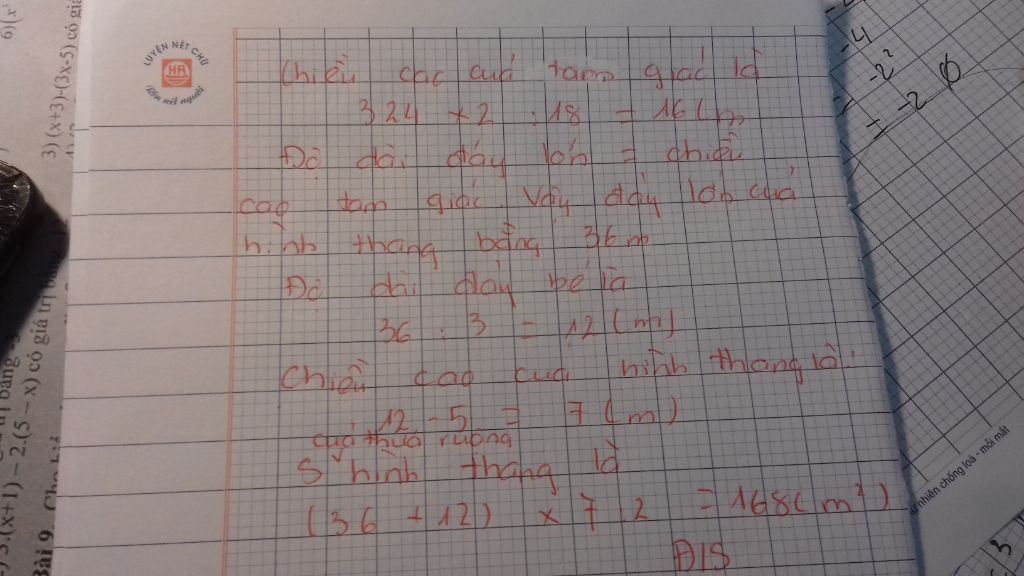 LUYỆN NÉT CHỮ
HA
Rèn nết người
Chiều cac cuả tam giác là
324 x 2 : 18 = 16 (m
Độ dài đáy lớn = chiều
cao tam giác. Vậy đáy lớn cuả
hình thang bằng 36m
Độ dài đáy bé là
36 : 3 = 12 (m)
Chiều cao cuả hình thang là:
12 - 5 = 7 (m)
cuả thửa ruộng
S hình thang là
(36 + 12) x 7 : 2 = 168 (m²)
Đ/S
6)(x
3)(x+3)+(3x-5) có giá
có giá trị bằng
3.(x+1) – 2.(5 – x) có giá trị bằng
Bài 9
-4
-2²
= -2
tự nhiên chống loá - mỏi mắt
3